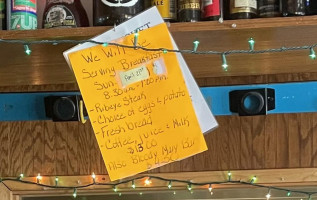 We will be
Serving Breakfast
Sun
8:30am - 1:00pm
- Ribeye Steak
- Choice of eggs & potato
- Fresh bread
- Coffee, juice & Milk
$15.00
Also Bloody Mary Bar